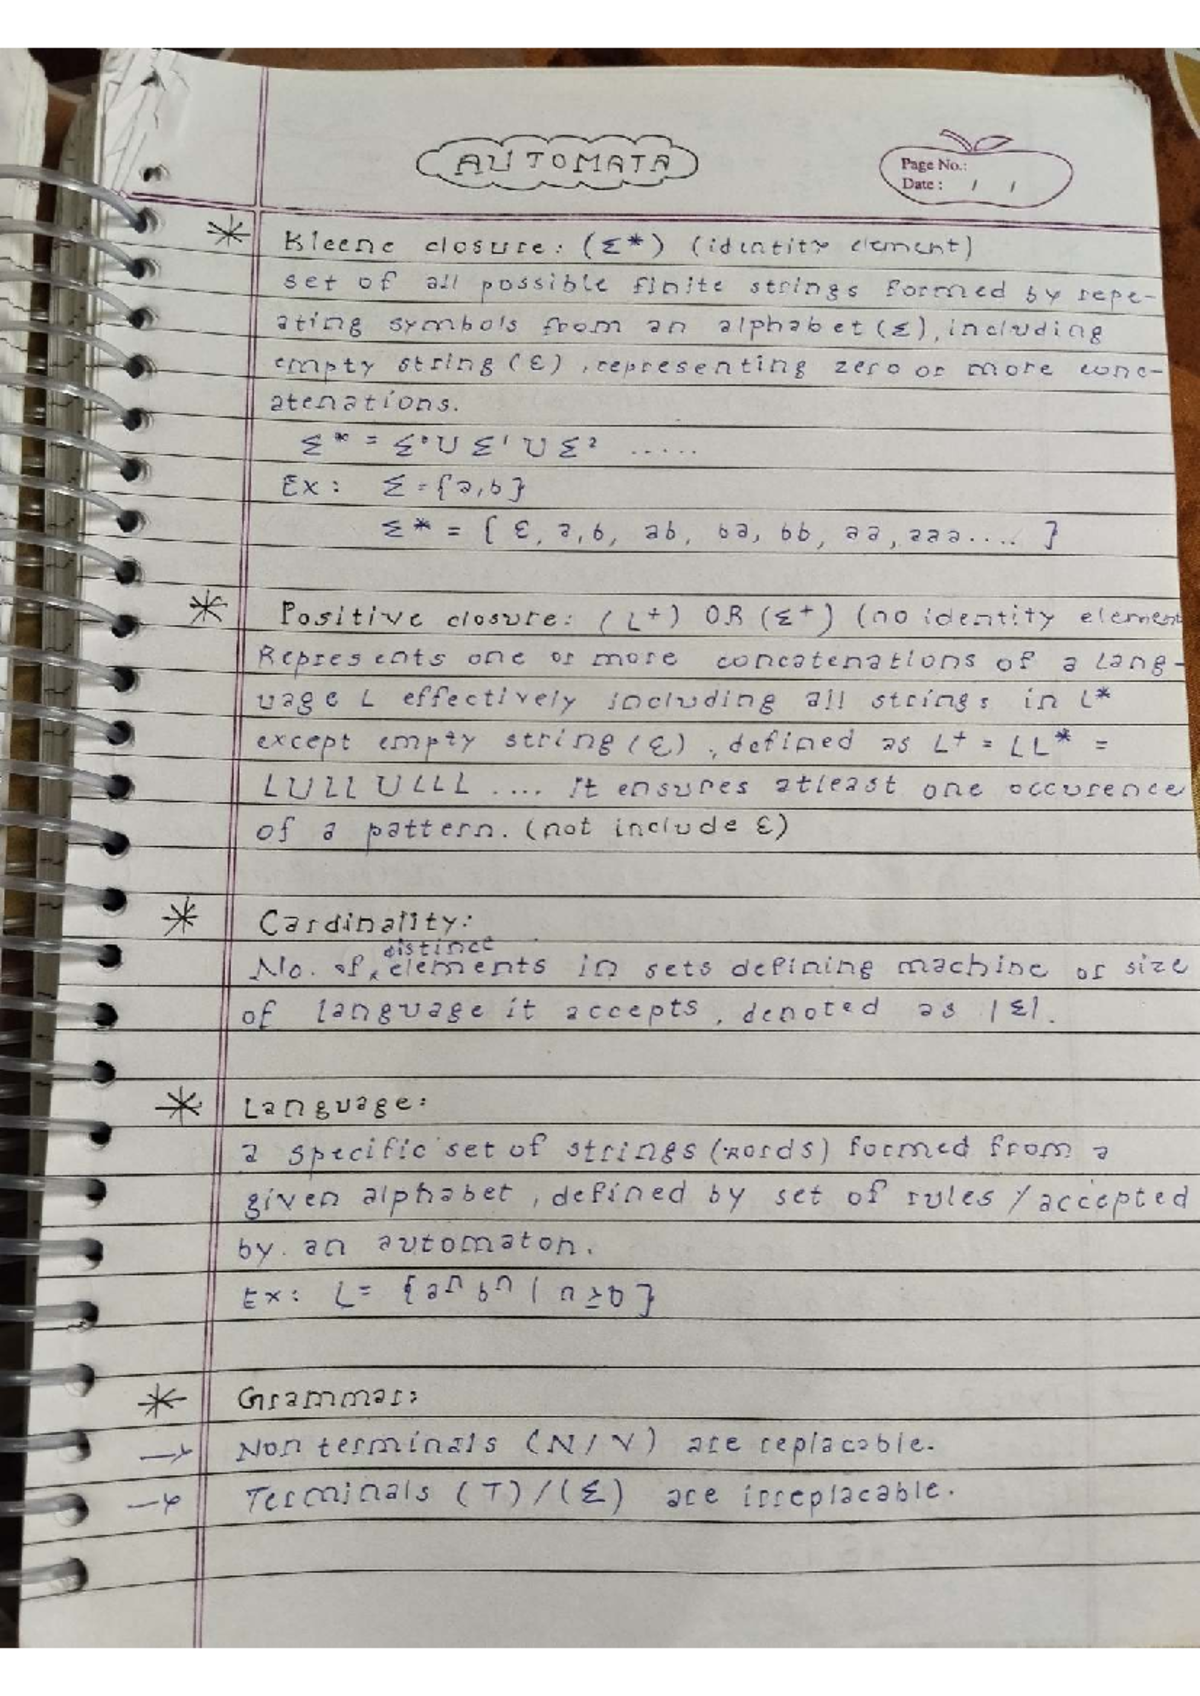 AUTOMATA
Page No.:
Date : / /
* Kleene closure: (Σ*) (identity element)
set of all possible finite strings formed by repe-
ating symbols from an alphabet (Σ), including
empty string (ε), representing zero or more conc-
atenations.
Σ* = Σ⁰ U Σ¹ U Σ² .....
Ex: Σ = {a,b}
Σ* = { ε, a, b, ab, ba, bb, aa, aaa.... }
* Positive closure: (L⁺) OR (Σ⁺) (no identity element
Represents one or more concatenations of a lang-
uage L effectively including all strings in L*
except empty string (ε), defined as L⁺ = LL* =
LULLULLL .... It ensures atleast one occurence
of a pattern. (not include ε)
* Cardinality:
distinct
No. of elements in sets defining machine or size
of language it accepts, denoted as |Σ|.
* Language:
a specific set of strings (words) formed from a
given alphabet, defined by set of rules / accepted
by an automaton.
Ex: L = {aⁿbⁿ | n≥0}
* Grammar:
→ Non terminals (N/V) are replacable.
→ Terminals (T)/(Σ) are irreplacable.